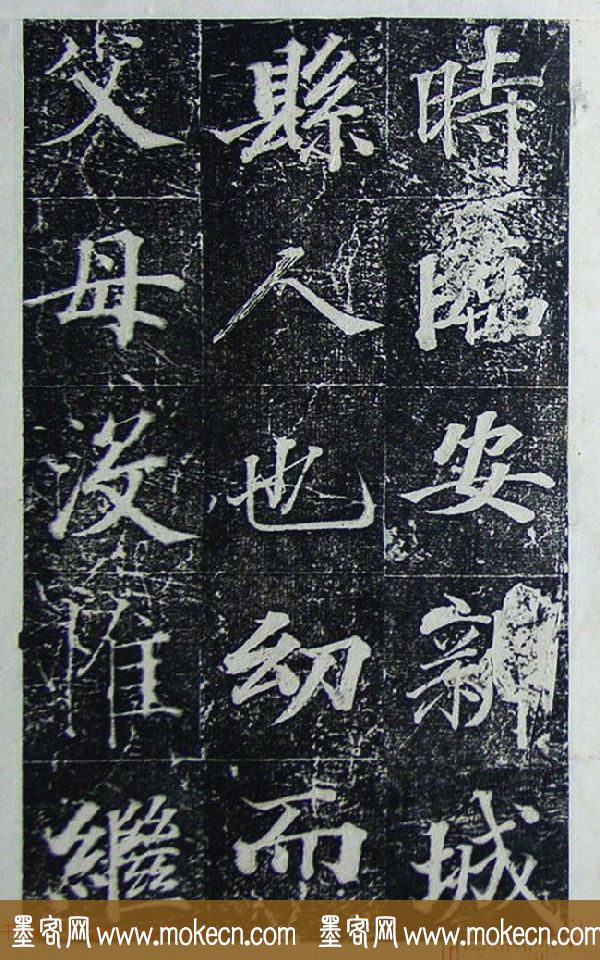 時臨安新城
縣人也幼而
父母没惟繼
墨客网 www.mokecn.com 墨客网 www.mokecn.com